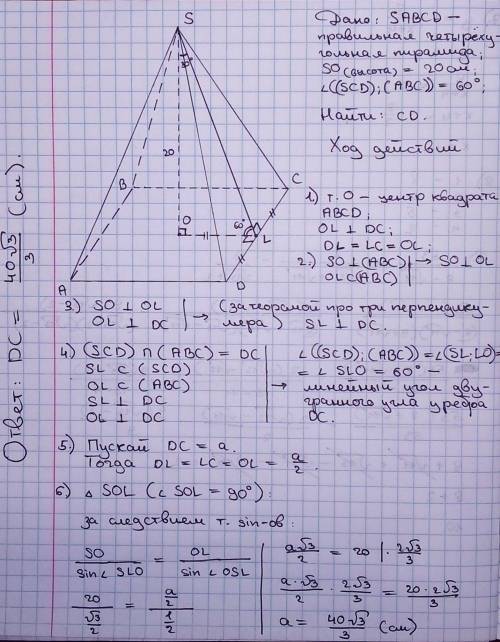 Дано: SABCD –
правильная четырёху-
гольная пирамида;
SO (высота) = 20 см;
∠((SCD);(ABC)) = 60°;
Найти: CD.
Ход действий
S
30°
20
B
C
O
60°
L
A
D
1) т. O – центр квадрата
ABCD;
OL ⊥ DC;
DL = LC = OL;
2) SO ⊥ (ABC) | → SO ⊥ OL
OL ⊂ (ABC)
3) SO ⊥ OL | → (за теоремой про три перпендику-
OL ⊥ DC | мера) SL ⊥ DC.
4) (SCD) ∩ (ABC) = DC | ∠((SCD);(ABC)) = ∠(SL;LO) =
SL ⊂ (SCD) | = ∠ SLO = 60° –
OL ⊂ (ABC) | → линейный угол дву-
SL ⊥ DC | гранного угла у ребра
OL ⊥ DC | DC.
5) Пускай DC = a.
Тогда DL = LC = OL = a/2.
6) △ SOL (∠ SOL = 90°):
за следствием т. sin-ов:
SO/sin∠SLO = OL/sin∠OSL
20/(√3/2) = (a/2)/(1/2)
a√3/2 = 20 | · 2√3/3
a·√3/2 · 2√3/3 = 20·2√3/3
a = 40√3/3 (см)
Ответ: DC = 40√3/3 (см).